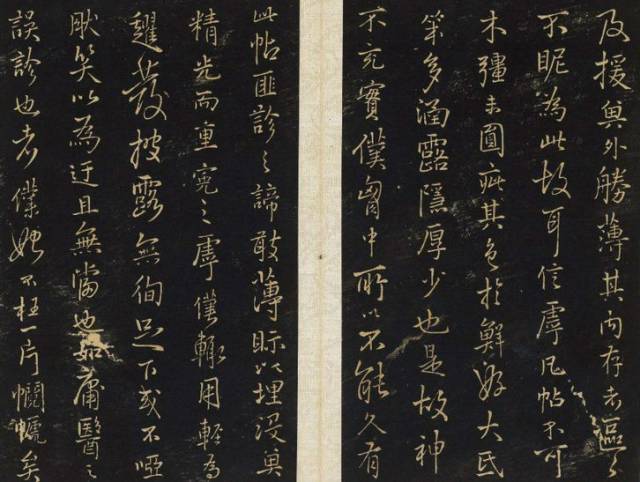 及援與外勝薄其内存者區々
不眤為此故耳信虖凡帖不可
木彊未圓疵其色於鮮好大氐
笨多涵露隱厚少也是故神
不充實僕胷中所以不能久有
此帖匪診之諦敢薄眎以埋没奥
精光而重冤之虖僕輙用輕為
發披露無徇足下或不啞
肰笑以為迂且無當也如庸醫之
誤診也者僕始不枉一片矣